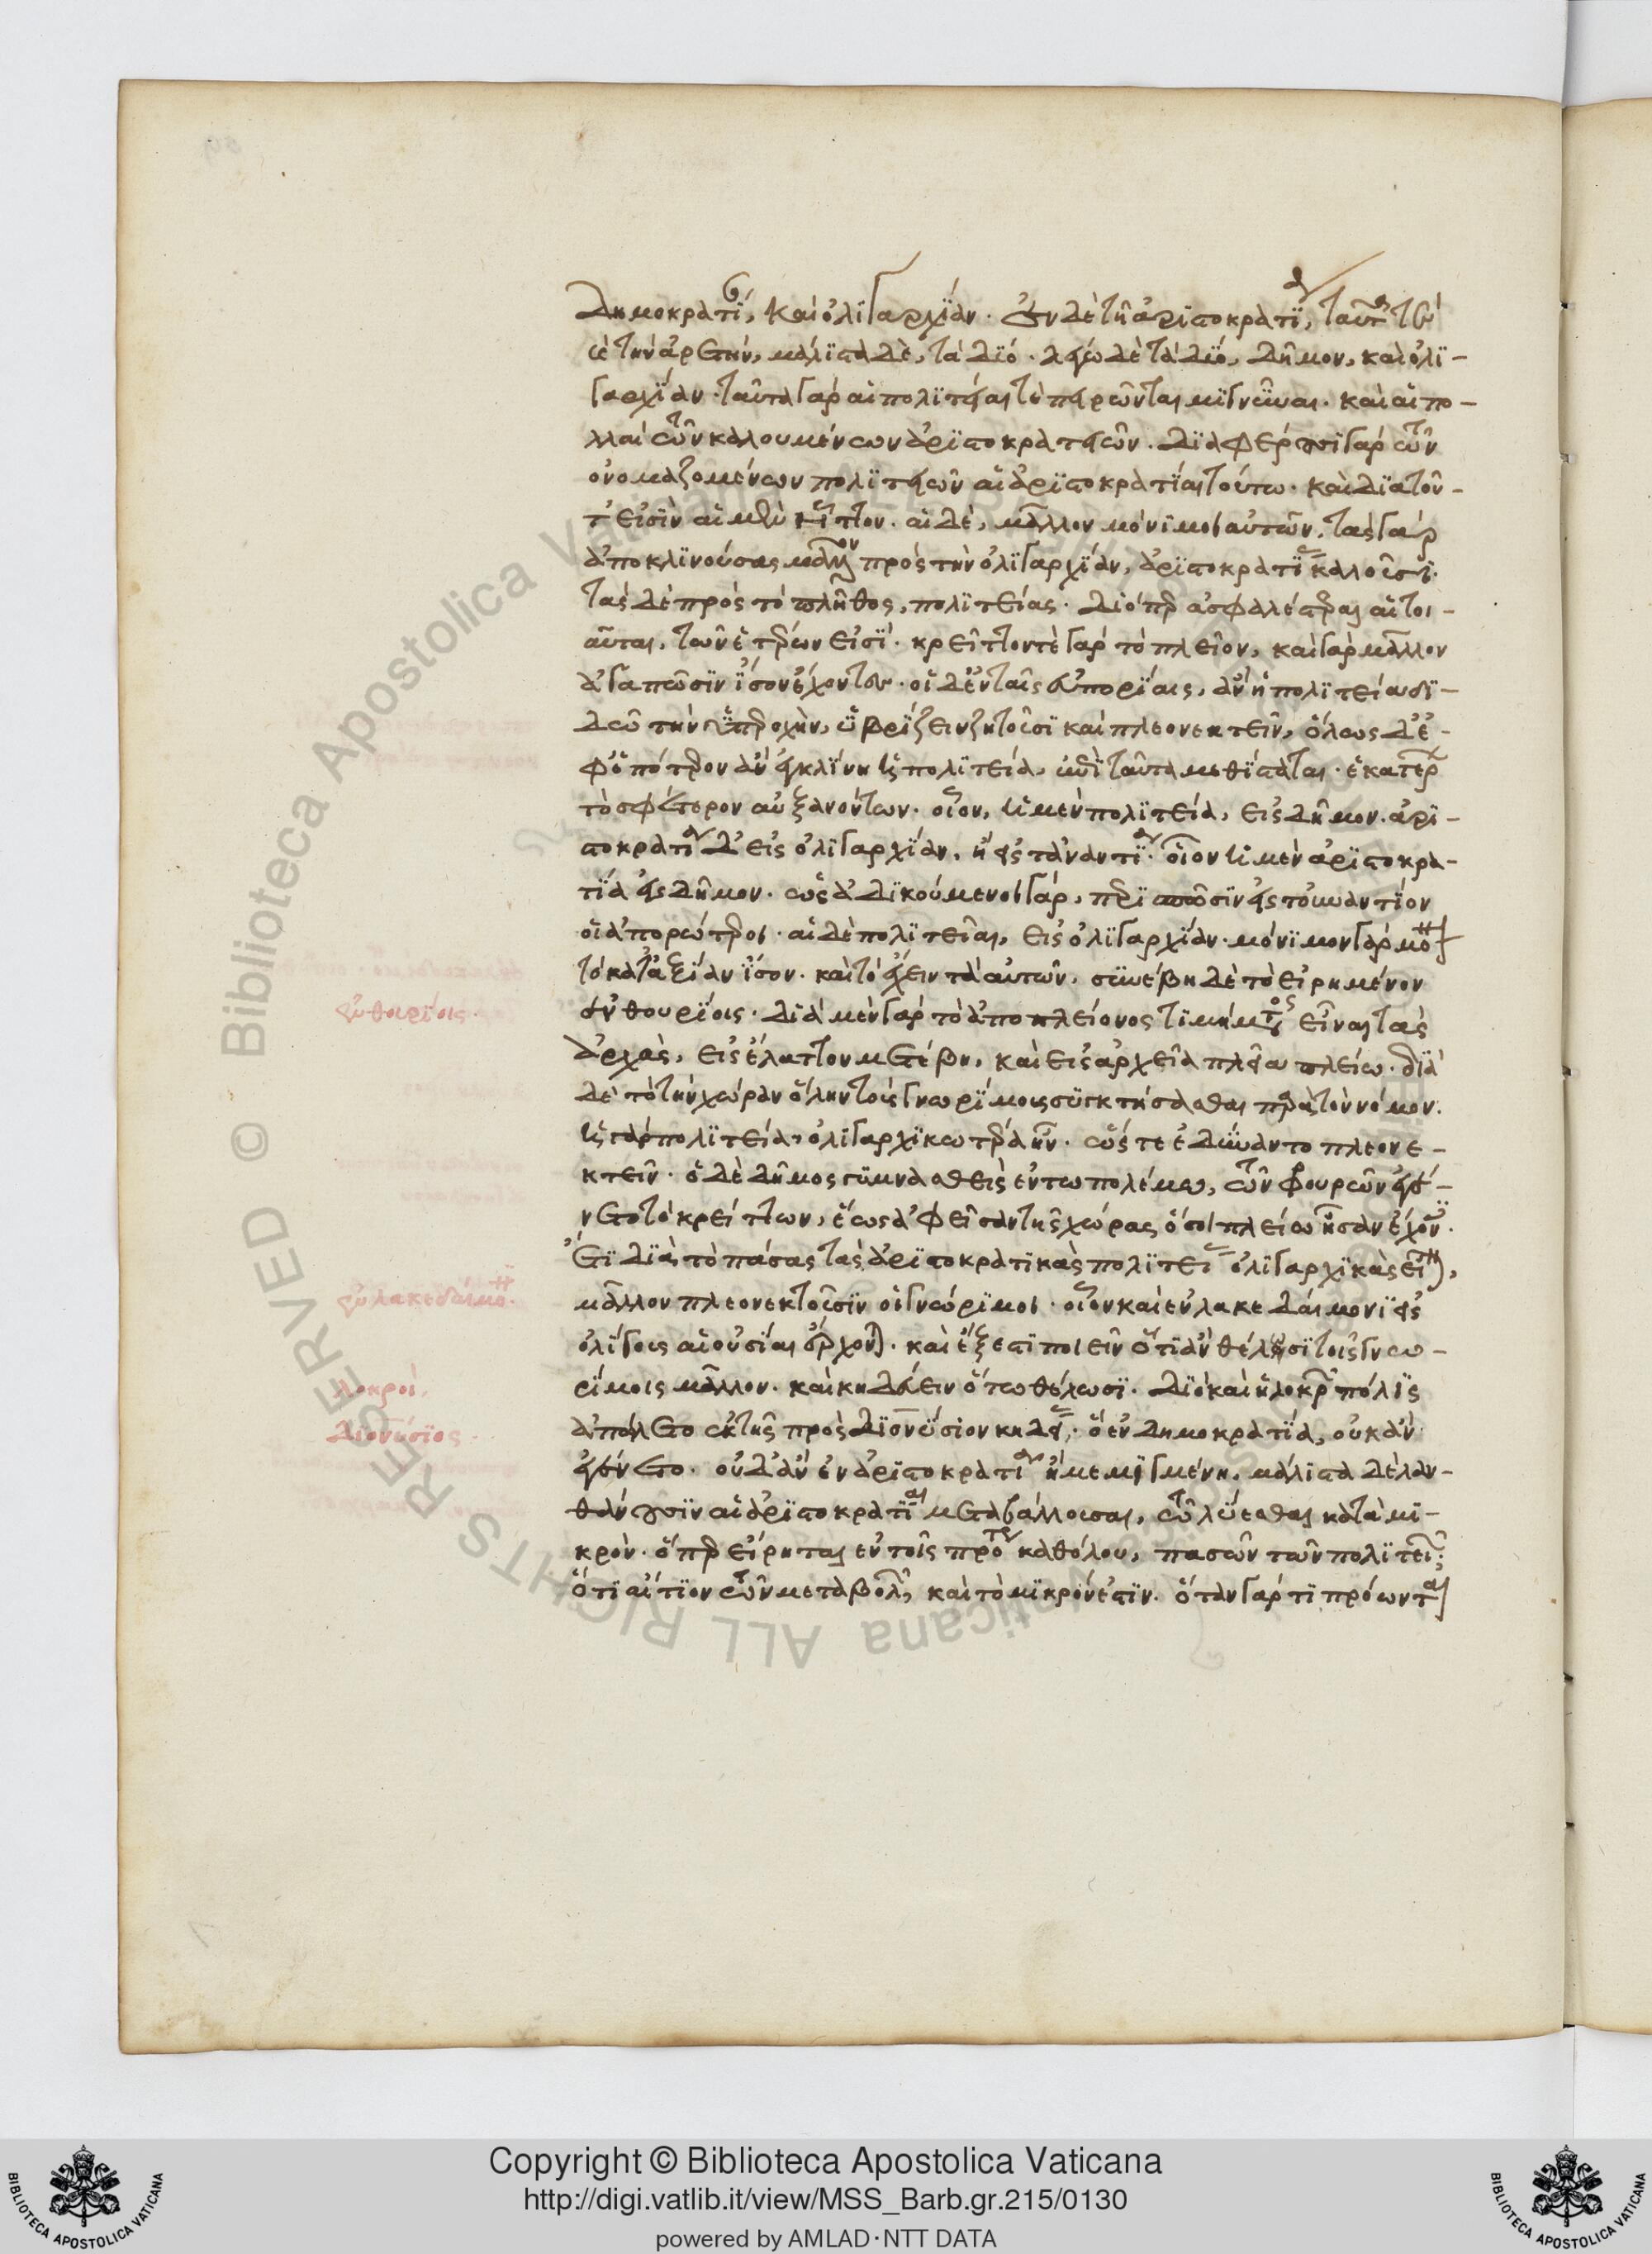 δημοκρατί, καὶ ὀλιγαρχίαν. ἐν δὲ τῆ ἀριστοκρατί, ταῦτά τε
καὶ τὴν ἀρετήν, μάλιστα δὲ, τὰ δύο. λέγω δὲ τὰ δύο, δῆμον, καὶ ὀλι-
γαρχίαν. ταῦτα γὰρ αἱ πολιτεῖαί τε πειρῶνται μιγνύναι. καὶ αἱ πο-
λλαὶ τῶν καλουμένων ἀριστοκρατειῶν. διαφέρουσι γὰρ τῶν
ὀνομαζομένων πολιτειῶν αἱ ἀριστοκρατίαι τούτω. καὶ διὰ τοῦ-
τ' εἰσὶν αἱ μὲν ἧττον. αἱ δὲ, μᾶλλον μόνιμοι αὐτῶν. τὰς γὰρ
ἀποκλινούσας μᾶλλον πρὸς τὴν ὀλιγαρχίαν, ἀριστοκρατίας καλοῦσι.
τὰς δὲ πρὸς τὸ πλῆθος, πολιτείας. διόπερ ἀσφαλέστεραι αἱ τοι-
αῦται, τῶν ἑτέρων εἰσί. κρεῖττόν τε γὰρ τὸ πλεῖον, καὶ γὰρ μᾶλλον
ἀγαπῶσιν ἴσον ἔχοντες. οἱ δ' ἐν ταῖς εὐπορίαις, ἂν ἡ πολιτεία δι-
δῶ τὴν ὑπεροχὴν, ὑβρίζειν ζητοῦσι καὶ πλεονεκτεῖν, ὅλως δ' ἐ-
φ' ὁπότερον ἂν ἐγκλίνη ἡ πολιτεία, ἐπὶ ταῦτα μεθίσταται. ἑκατέρων
τὸ σφέτερον αὐξανόντων. οἷον, ἡ μὲν πολιτεία, εἰς δῆμον. ἀρι-
στοκρατία δ' εἰς ὀλιγαρχίαν, ἢ εἰς τἀναντία. οἷον ἡ μὲν ἀριστοκρα-
τία εἰς δῆμον. ὡς ἀδικούμενοι γὰρ, περισπῶσιν εἰς τοὐναντίον
οἱ ἀπορώτεροι. αἱ δὲ πολιτεῖαι, εἰς ὀλιγαρχίαν. μόνιμον γὰρ μόνον
τὸ κατ' ἀξίαν ἴσον. καὶ τὸ ἔχειν τὰ αὐτῶν. συνέβη δὲ τὸ εἰρημένον
ἐν θουρίοις. διὰ μὲν γὰρ τὸ ἀπὸ πλείονος τιμήματος εἶναι τὰς
ἀρχὰς, εἰς ἔλαττον μετέβη, καὶ εἰς ἀρχεῖα πλείω πλείω. διὰ
δὲ τὸ τὴν χώραν ὅλην τοὺς γνωρίμους συγκτήσασθαι παρὰ τὸν νόμον.
ἡ γὰρ πολιτεία, ὀλιγαρχικωτέρα ἦν. ὥστε ἐδύναντο πλεονε-
κτεῖν. ὁ δὲ δῆμος γυμνασθεὶς ἐν τω πολέμω, τῶν φρουρῶν ἐγέ-
νετο κρείττων, ἕως ἀφεῖσαν τῆς χώρας ὅσοι πλείω ἦσαν ἔχοντες.
ἔτι διὰ τὸ πάσας τὰς ἀριστοκρατικὰς πολιτείας ὀλιγαρχικὰς εἶναι,
μᾶλλον πλεονεκτοῦσιν οἱ γνώριμοι. οἷον καὶ ἐν λακεδαίμονι εἰς
ὀλίγους αἱ οὐσίαι ἔρχονται. καὶ ἔξεστι ποιεῖν ὅτι ἂν θέλωσι τοῖς γνω-
ρίμοις μᾶλλον. καὶ κηδεύειν ὅτω θέλωσι. διὸ καὶ ἡ λοκρῶν πόλις
ἀπώλετο ἐκ τῆς πρὸς διονύσιον κηδείας. ὃ ἐν δημοκρατία, οὐκ ἂν
ἐγένετο. οὐδ' ἂν ἐν ἀριστοκρατία εὖ μεμιγμένη. μάλιστα δὲ λαν-
θάνουσιν αἱ ἀριστοκρατίαι μεταβάλλουσαι, τῶ λύεσθαι κατὰ μι-
κρόν. ὅπερ εἴρηται ἐν τοῖς πρότερον καθόλου, πασῶν τῶν πολιτειῶν,
ὅτι αἴτιον τῶν μεταβολῶν, καὶ τὸ μικρόν ἐστιν. ὅταν γάρ τι προῶνται
ἐν θουρίοις.
ἐν λακεδαίμονι.
λοκροί.
Διονύσιος.
Copyright © Biblioteca Apostolica Vaticana
http://digi.vatlib.it/view/MSS_Barb.gr.215/0130
powered by AMLAD·NTT DATA
BIBLIOTECA APOSTOLICA VATICANA
BIBLIOTECA APOSTOLICA VATICANA
Biblioteca Apostolica Vaticana ALL RIGHTS RESERVED ©